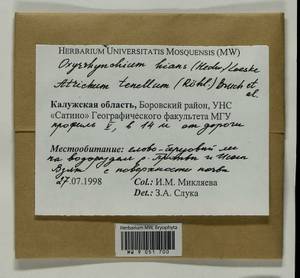 HERBARIUM UNIVERSITATIS MOSQUENSIS (MW)
Oxyrrhynchium hians (Hedw.) Loeske
Atrichum tenellum (Röhl.) Bruch et al.
Калужская область, Боровский район, УНС
«Сатино» Географического факультета МГУ
профиль I, в 14 м от дороги
Местообитание: елово-берёзовый
на водоразделе р. и
Взят с поверхности почвы
27.07.1998 Col.: И.М. Микляева
Det.: З.А. Слука
Herbarium MW, Bryophyta
MW 9 051 700